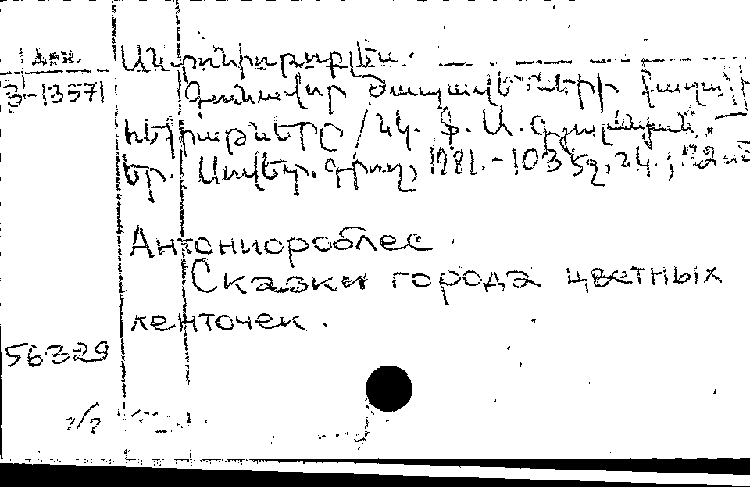 Անտոնիոռոբլես.
3-13571 Գունավոր ժապավենների քաղաքի
հեքիաթները / Նկ. Ֆ. Ա.
Եր. Սովետ. գրող, 1981.-103 էջ, նկ.; 22 սմ
Антониороблес.
Сказки города цветных
ленточек.
56329